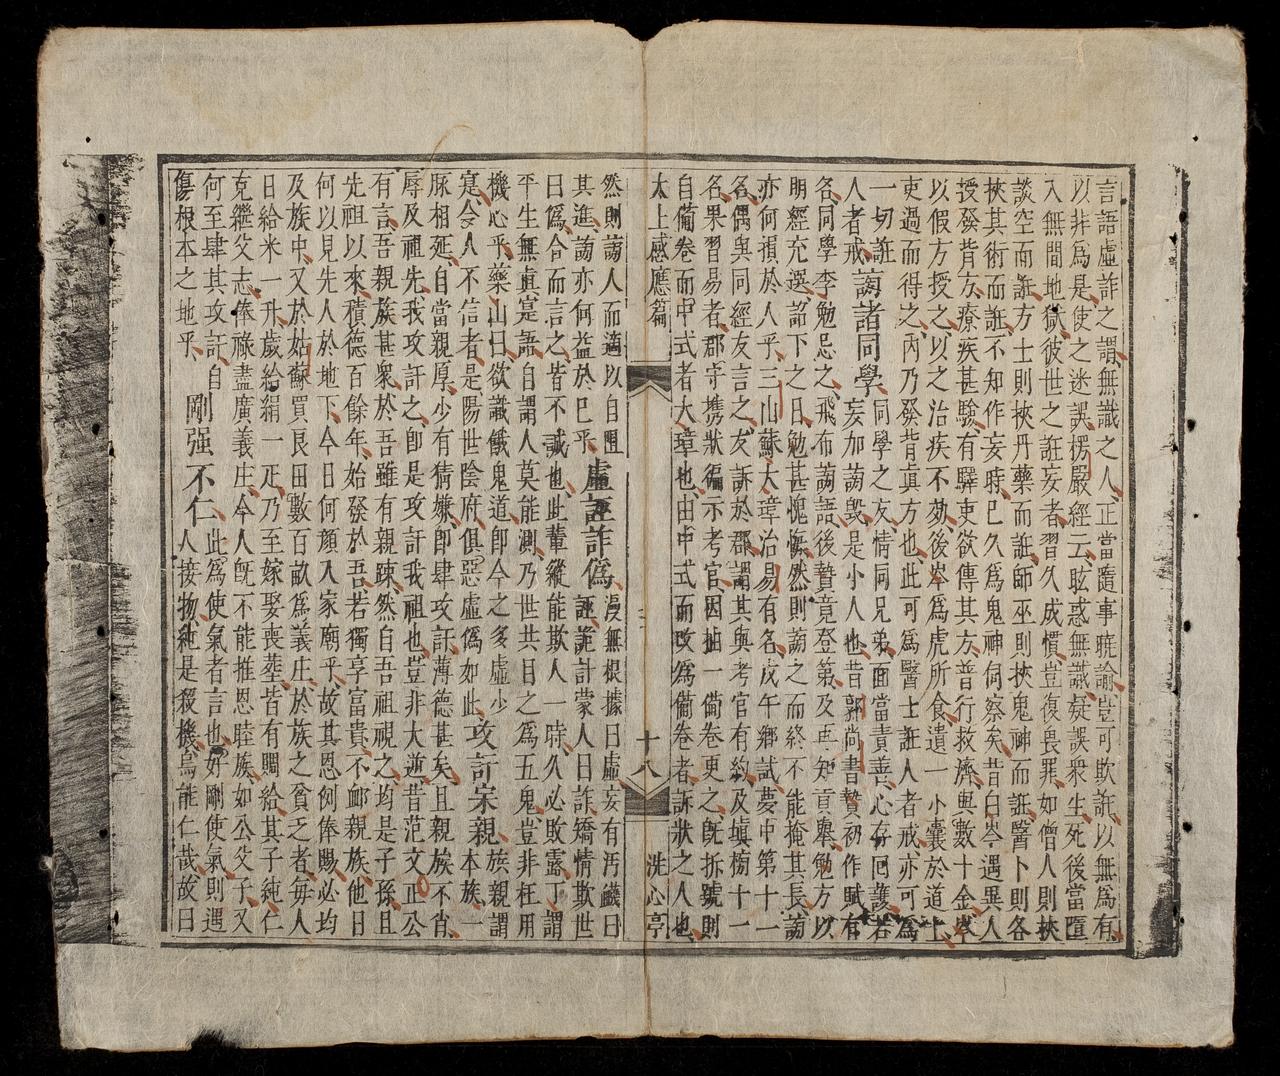 言語虛詐之謂無識之人正當隨事曉諭豈可欺誑以無爲有
以非爲是使之迷誤楞嚴經云眩惑無識疑誤衆生死後當墮
入無間地獄彼世之誑妄者習久成慣豈復畏罪如僧人則挾
談空而誑方士則挾丹藥而誑師巫則挾鬼神而誑醫卜則各
挾其術而誑不知作妄時已久爲鬼神伺察矣昔白岑遇異人
授發背方療疾甚驗有驛吏欲傳其方普行救濟與數十金岑
以假方授之以之治疾不効後岑爲虎所食遺一小囊於道上
吏過而得之內乃發背眞方也此可爲醫士誑人者戒亦可爲
一切誑
人者戒 謗諸同學 同學之友情同兄弟面當責善心存回護若
妄加謗毀是小人也昔郭尚書贄初作賦有
名同學李勉忌之飛布謗語後贄竟登第及再知貢舉勉方以
明經充選詔下之日勉甚愧憮然則謗之而終不能掩其長謗
亦何損於人乎三山蘇大璋治易有名戊午鄉試夢中第十一
名偶與同經友言之友訴於郡謂其與考官有約及塡榜十一
名果習易者郡守携狀徧示考官因抽一備卷更之旣拆號則
自備卷而中式者大璋也由中式而改爲備卷者訴狀之人也
太上感應篇 十八 洗心亭
然則謗人而適以自阻
其進謗亦何益於巳乎 虛誣詐僞 漫無根據曰虛妄有污衊曰
誣詭計蒙人曰詐矯情欺世
曰僞合而言之皆不誠也此輩縱能欺人一時久必敗露丁謂
平生無眞寔語自謂人莫能測乃世共目之爲五鬼豈非枉用
機心乎藥山曰欲識餓鬼道卽今之多虛少
寔令人不信者是陽世陰府俱惡虛僞如此 攻訐宗親 族親謂
本族一
脉相延自當親厚少有猜嫌卽肆攻訐薄德甚矣且親族不肖
辱及祖先我攻訐之卽是攻訐我祖也豈非大逆昔范文正公
有言吾親族甚衆於吾雖有親疎然自吾祖視之均是子孫且
先祖以來積德百餘年始發於吾若獨享富貴不卹親族他日
何以見先人於地下今日何顏入家廟乎故其恩例俸賜必均
及族中又於姑蘇買良田數百畝爲義庄於族之貧乏者每人
日給米一升歲給絹一疋乃至嫁娶喪塟皆有贍給其子純仁
克繼父志俸祿盡廣義庄今人旣不能推恩睦族如公父子又
何至肆其攻訐自
傷根本之地乎 剛强不仁 此爲使氣者言也好剛使氣則遇
人接物純是殺機烏能仁哉故曰